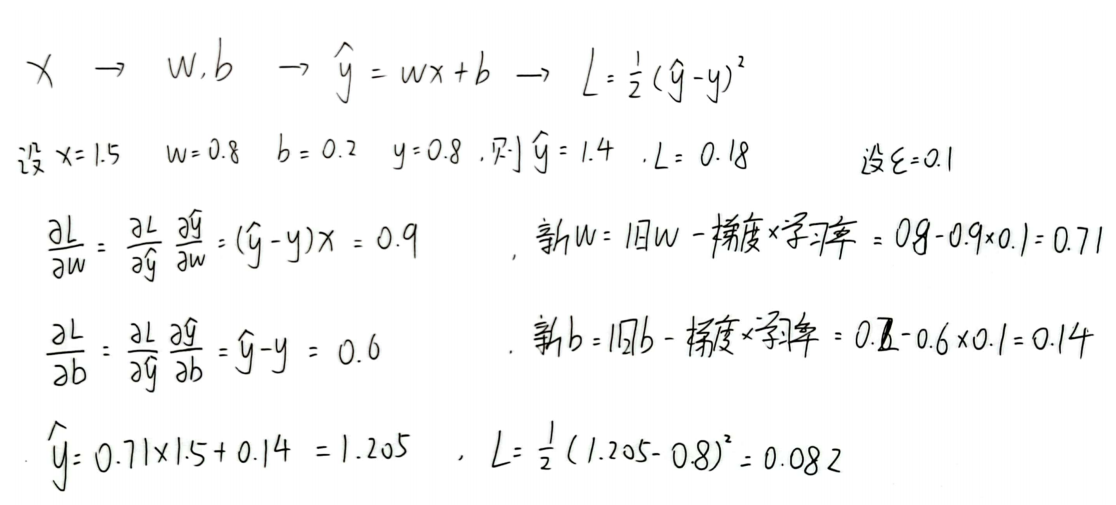 x → w,b → ŷ = wx+b → L = ½(ŷ-y)²
设 x=1.5 w=0.8 b=0.2 y=0.8 ,则 ŷ=1.4 ,L=0.18 设 ε=0.1
∂L/∂w = ∂L/∂ŷ ∂ŷ/∂w = (ŷ-y)x = 0.9 , 新w=旧w-梯度×学习率=0.8-0.9×0.1=0.71
∂L/∂b = ∂L/∂ŷ ∂ŷ/∂b = ŷ-y = 0.6 , 新b=旧b-梯度×学习率=0.2-0.6×0.1=0.14
ŷ=0.71×1.5+0.14 =1.205 , L=½(1.205-0.8)²=0.082